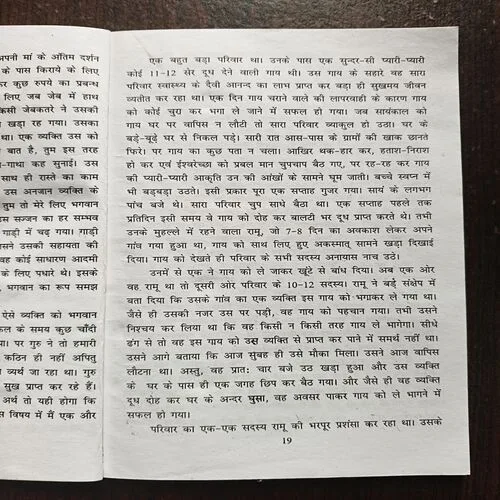 अपनी मां के अंतिम दर्शन
के पास किराये के लिए
कर कुछ रुपये का प्रबन्ध
लिए जब जेब में हाथ
किसी जेबकतरे ने उसकी
खड़ा रह गया। उसका
था। एक व्यक्ति उस को
बात है, तुम इस तरह
-गाथा कह सुनाई। उस
साथ ही रास्ते का काम
उस अनजान व्यक्ति के
तुम तो मेरे लिए भगवान
इस सज्जन का हर सम्भव
गाड़ी में चढ़ गया। गाड़ी
जिसने उसकी सहायता की
वह कोई साधारण आदमी
के लिए पधारे थे। इसके
, भगवान का रूप समझ
ऐसे व्यक्ति को भगवान
के समय कुछ चाँदी
पर गुरु ने तो हमारी
कठिन ही नहीं अपितु
व्यर्थ जा रहा था। गुरु
सुख प्राप्त कर रहे हैं।
अर्थ तो यही होगा कि
इस विषय में मैं एक और
एक बहुत बड़ा परिवार था। उनके पास एक सुन्दर-सी प्यारी-प्यारी
कोई 11-12 सेर दूध देने वाली गाय थी। उस गाय के सहारे वह सारा
परिवार स्वास्थ्य के दैवी आनन्द का लाभ प्राप्त कर बड़ा ही सुखमय जीवन
व्यतीत कर रहा था। एक दिन गाय चराने वाले की लापरवाही के कारण गाय
को कोई चुरा कर भगा ले जाने में सफल हो गया। जब सायंकाल को
गाय घर पर वापिस न लौटी तो सारा परिवार व्याकुल हो उठा। घर के
बड़े-बूढ़े घर से निकल पड़े। सारी रात आस-पास के ग्रामों की खाक छानते
फिरे। पर गाय का कुछ पता न चला। आखिर थक-हार कर, हताश-निराश
हो कर एवं ईश्वरेच्छा को प्रबल मान चुपचाप बैठ गए, पर रह-रह कर गाय
की प्यारी-प्यारी आकृति उन की आंखों के सामने घूम जाती। बच्चे स्वप्न में
भी बड़बड़ा उठते। इसी प्रकार पूरा एक सप्ताह गुजर गया। सायं के लगभग
पांच बजे थे। सारा परिवार चुप साधे बैठा था। एक सप्ताह पहले तक
प्रतिदिन इसी समय वे गाय को दोह कर बालटी भर दूध प्राप्त करते थे। तभी
उनके मुहल्ले में रहने वाला रामू, जो 7-8 दिन का अवकाश लेकर अपने
गांव गया हुआ था, गाय को साथ लिए हुए अकस्मात् सामने खड़ा दिखाई
दिया। गाय को देखते ही परिवार के सभी सदस्य अनायास नाच उठे।
उनमें से एक ने गाय को ले जाकर खूंटे से बांध दिया। अब एक ओर
वह रामू था तो दूसरी ओर परिवार के 10-12 सदस्य। रामू ने बड़े संक्षेप में
बता दिया कि उसके गांव का एक व्यक्ति इस गाय को भगाकर ले गया था।
जैसे ही उसकी नजर उस पर पड़ी, वह गाय को पहचान गया। तभी उसने
निश्चय कर लिया था कि वह किसी न किसी तरह गाय ले भागेगा। सीधे
ढंग से तो वह इस गाय को उस व्यक्ति से प्राप्त कर पाने में समर्थ नहीं था।
उसने आगे बताया कि आज सुबह ही उसे मौका मिला। उसने आज वापिस
लौटना था। अस्तु, वह प्रात: चार बजे उठ खड़ा हुआ और उस व्यक्ति
के घर के पास ही एक जगह छिप कर बैठ गया। और जैसे ही वह व्यक्ति
दूध दोह कर घर के अन्दर घुसा, वह अवसर पाकर गाय को ले भागने में
सफल हो गया।
परिवार का एक-एक सदस्य रामू की भरपूर प्रशंसा कर रहा था। उसके
19